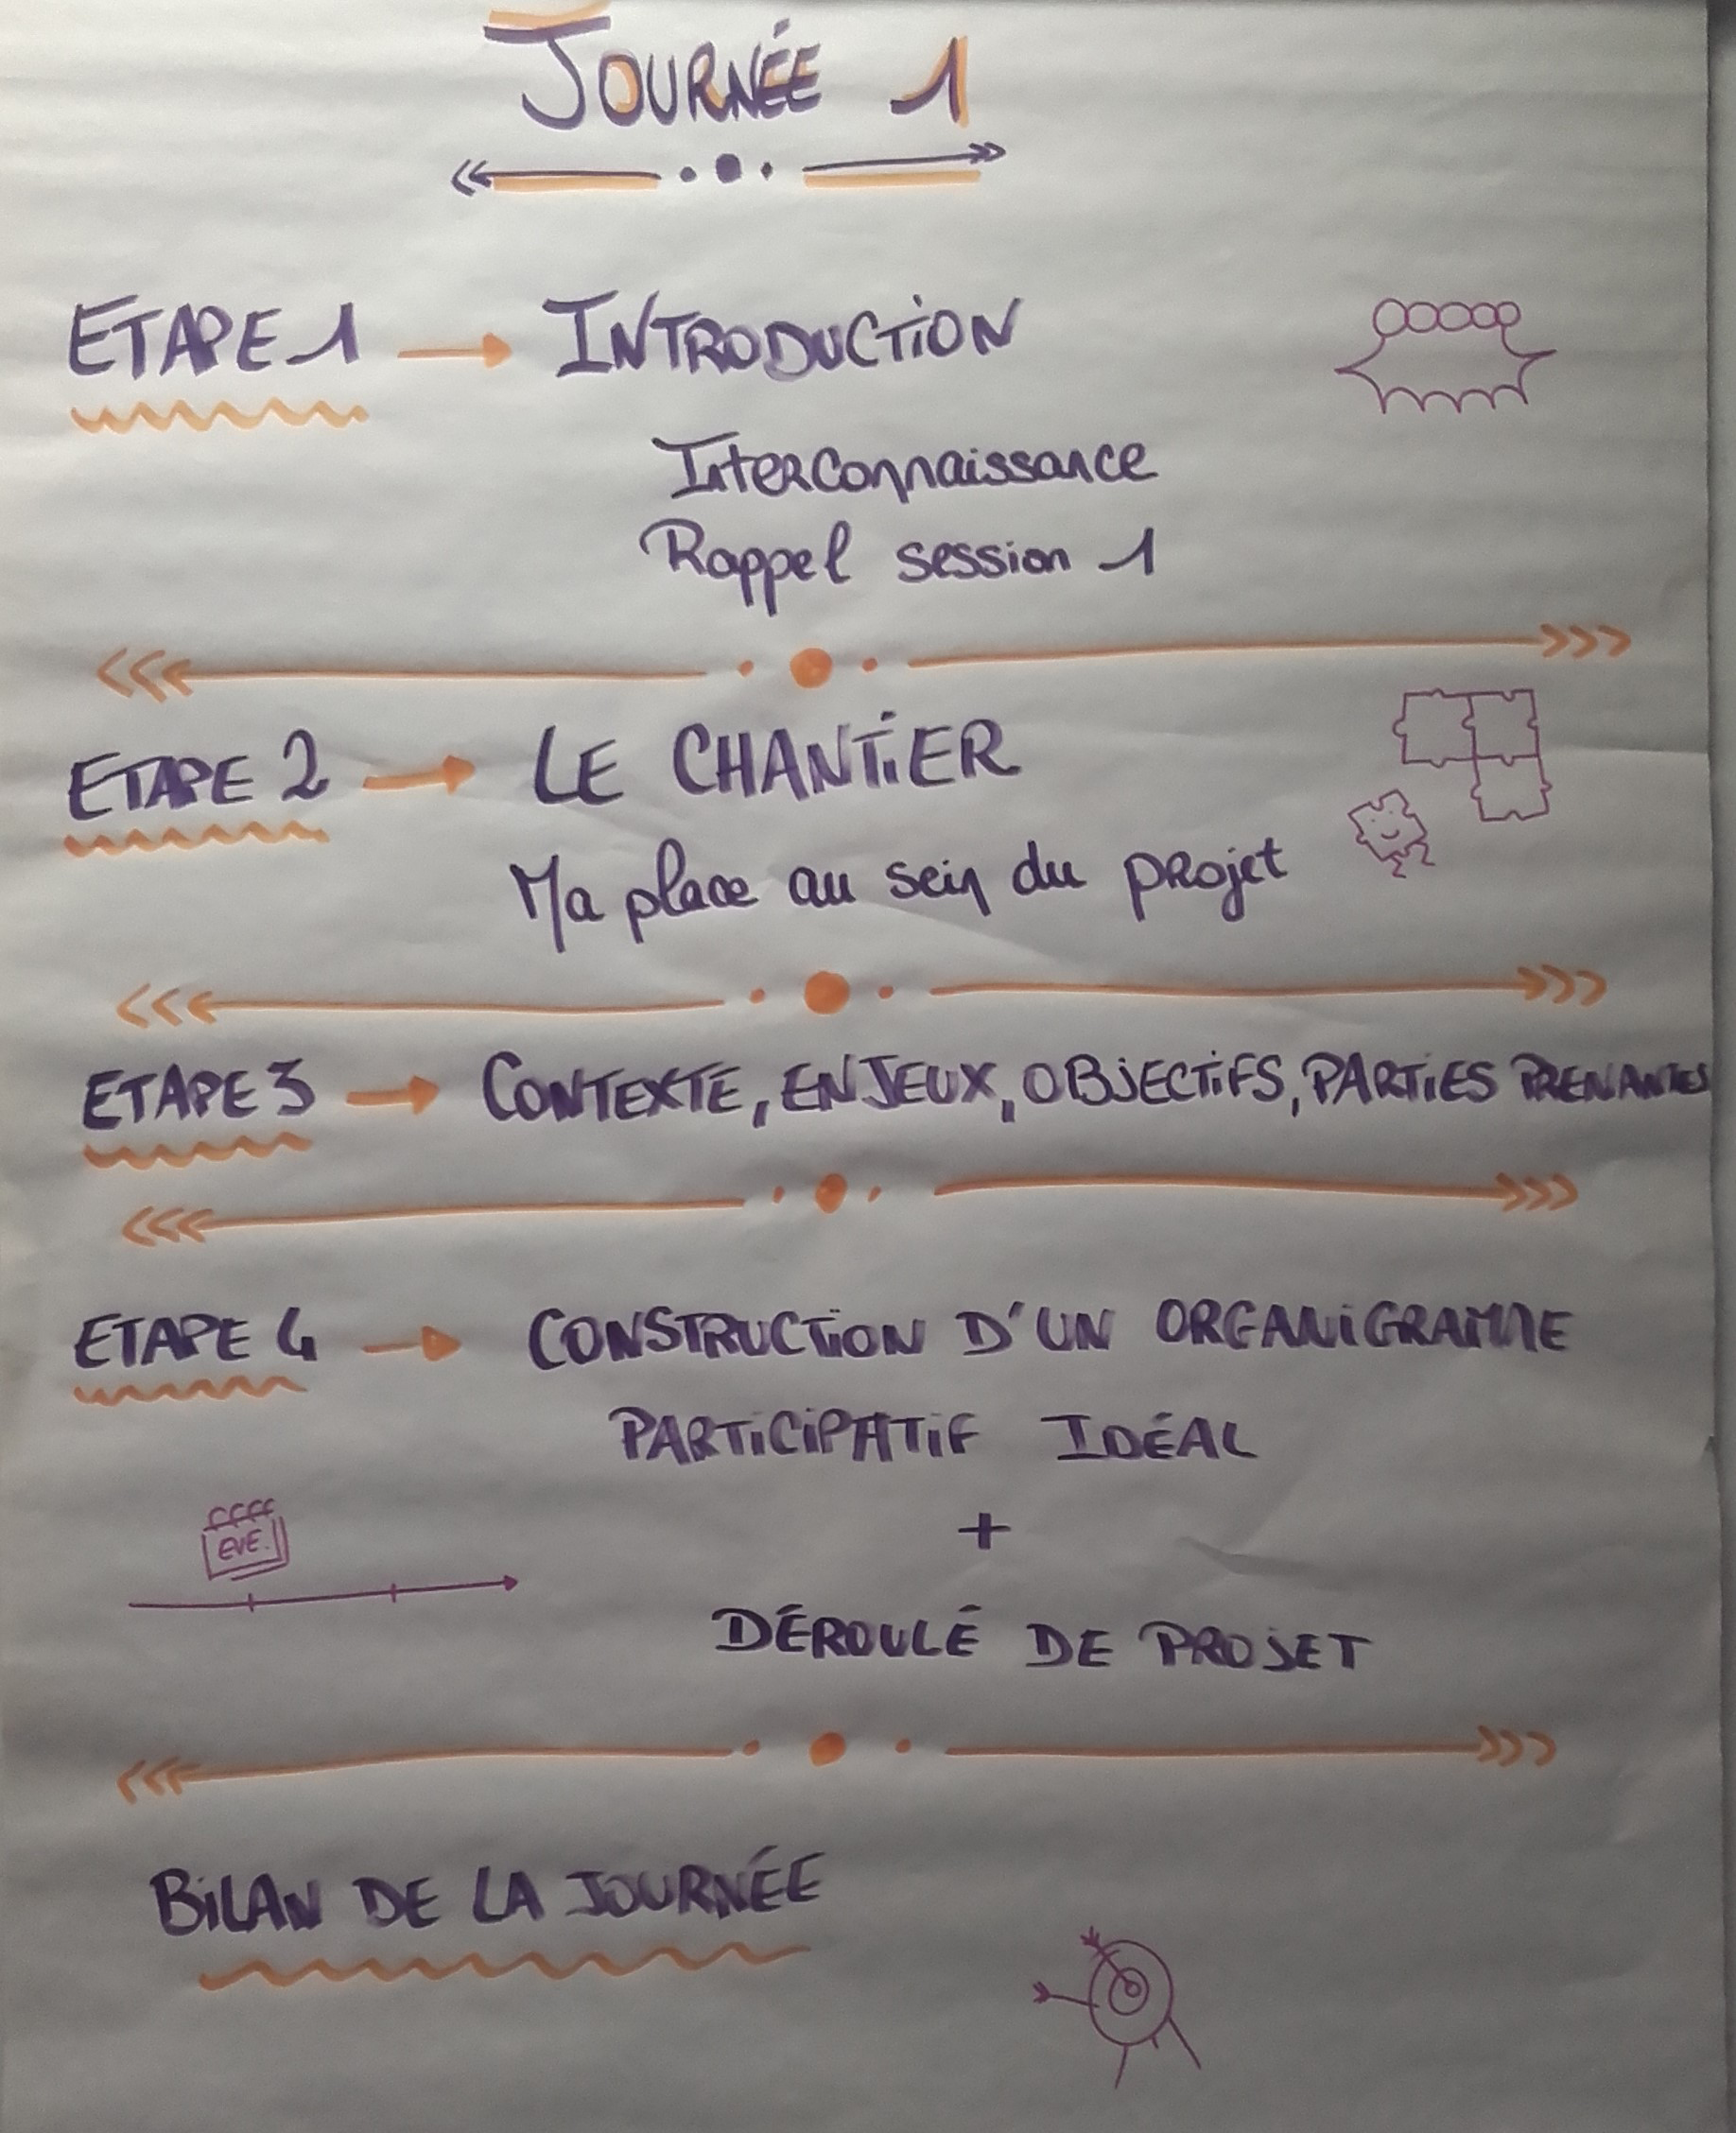 JOURNÉE 1
ETAPE 1 → INTRODUCTION
Interconnaissance
Rappel session 1
ETAPE 2 → LE CHANTIER
Ma place au sein du projet
ETAPE 3 → CONTEXTE, ENJEUX, OBJECTIFS, PARTIES PRENANTES
ETAPE 4 → CONSTRUCTION D'UN ORGANIGRAMME
PARTICIPATIF IDÉAL
+
EVE.
DÉROULÉ DE PROJET
BILAN DE LA JOURNÉE